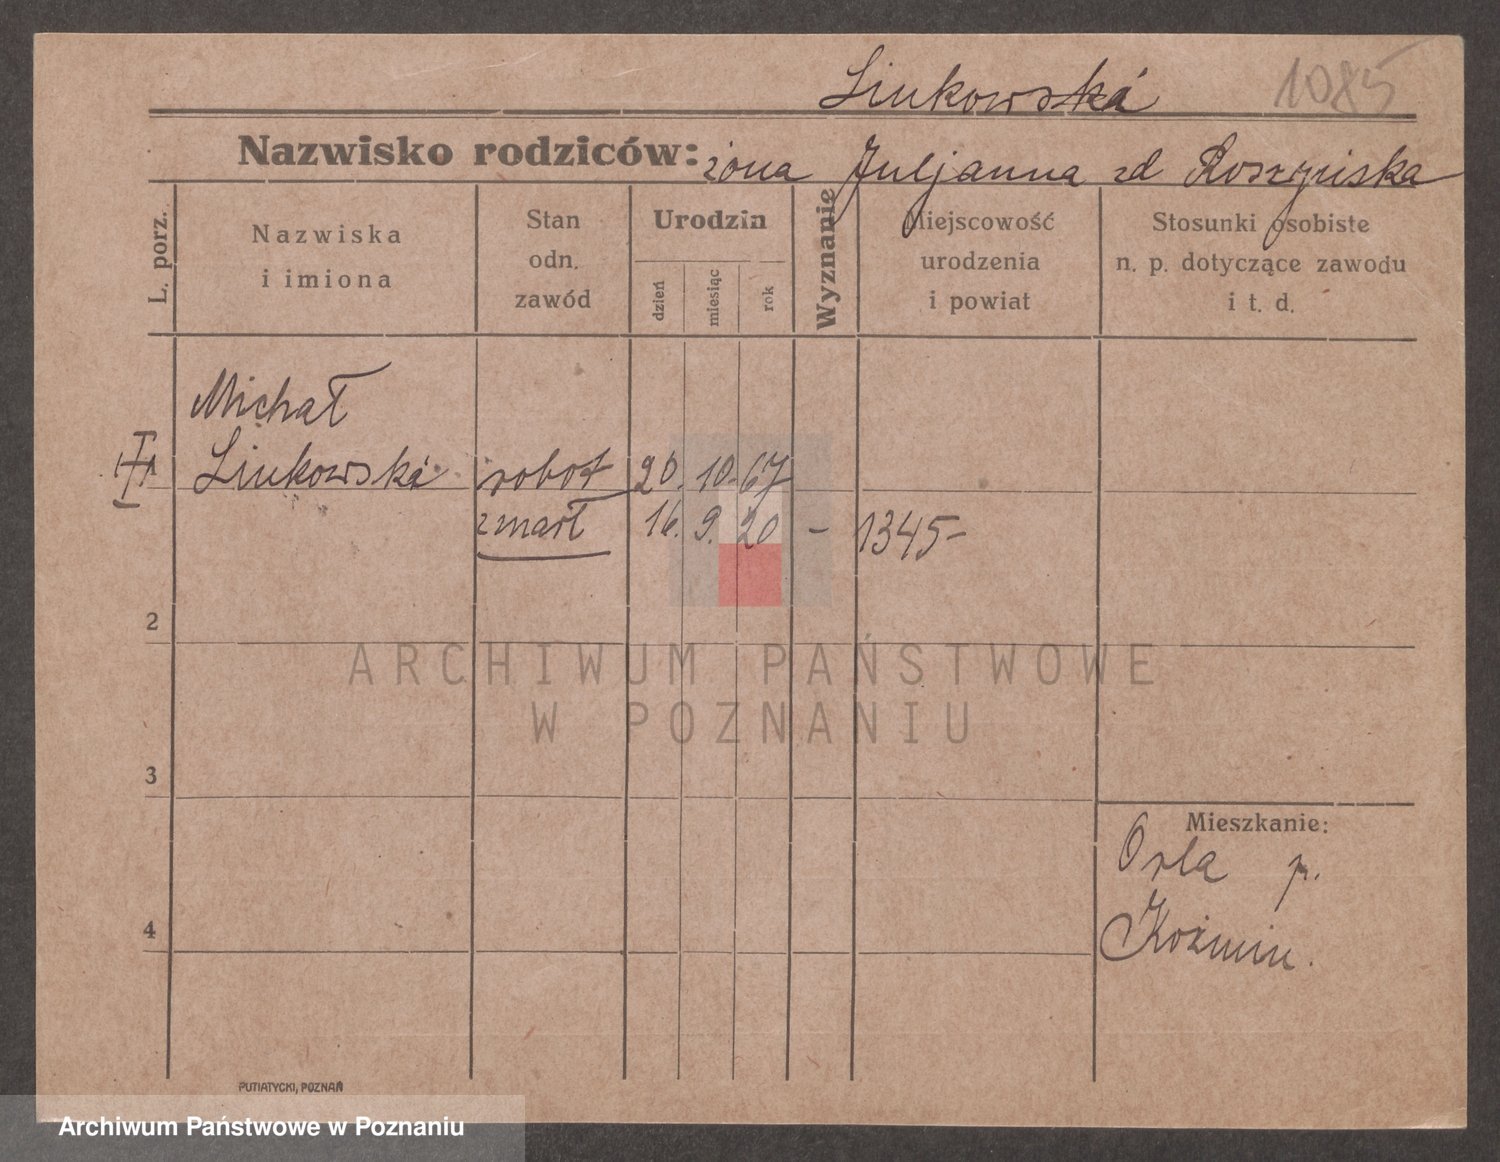 Linkowska 1085
Nazwisko rodziców: żona Juljanna zd Roszyńska
L. porz.
Nazwiska
i imiona
Stan
odn.
zawód
Urodzin
dzień
miesiąc
rok
Wyznanie
Miejscowość
urodzenia
i powiat
Stosunki osobiste
n. p. dotyczące zawodu
i t. d.
Michał
1 Linkowska robot 20. 10. 67
zmarł 16. 9. 20 – 1345–
2
ARCHIWUM PAŃSTWOWE
W POZNANIU
3
Mieszkanie:
Orla p.
4
Koźmin.
PUTIATYCKI, POZNAŃ
Archiwum Państwowe w Poznaniu